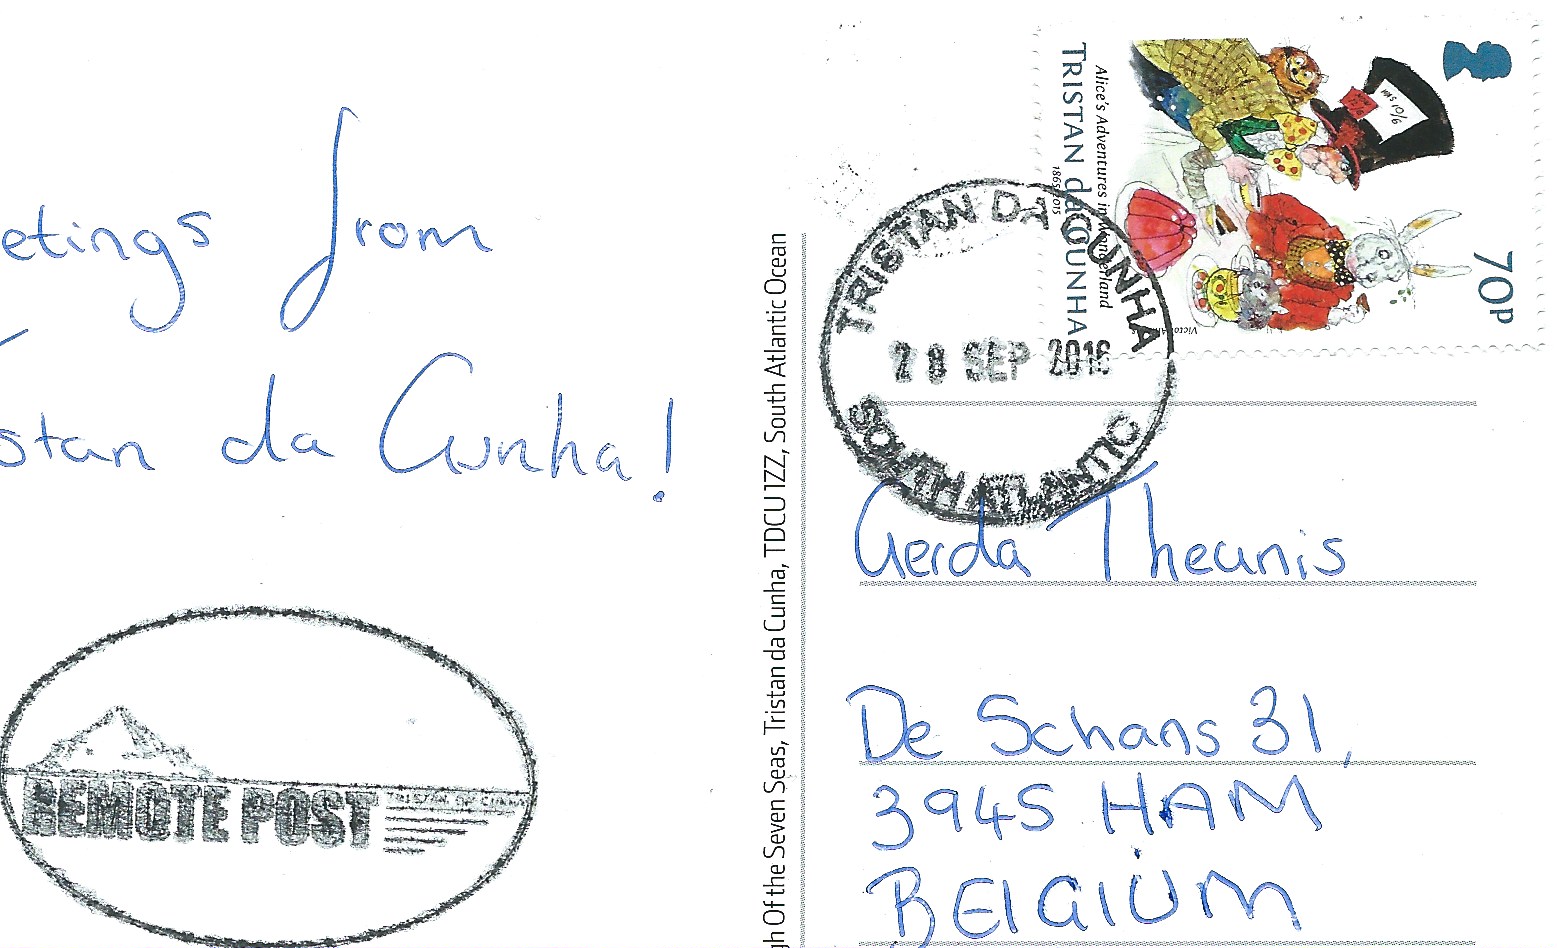 etings from
stan da Cunha!
REMOTE POST
TRISTAN DA CUNHA
gh Of the Seven Seas, Tristan da Cunha, TDCU 1ZZ, South Atlantic Ocean
Alice's Adventures in Wonderland
TRISTAN da CUNHA
1865-2015
70p
10/6
TRISTAN DA CUNHA
28 SEP 2016
SOUTH ATLANTIC
Gerda Theunis
De Schans 31,
3945 HAM
BELGIUM